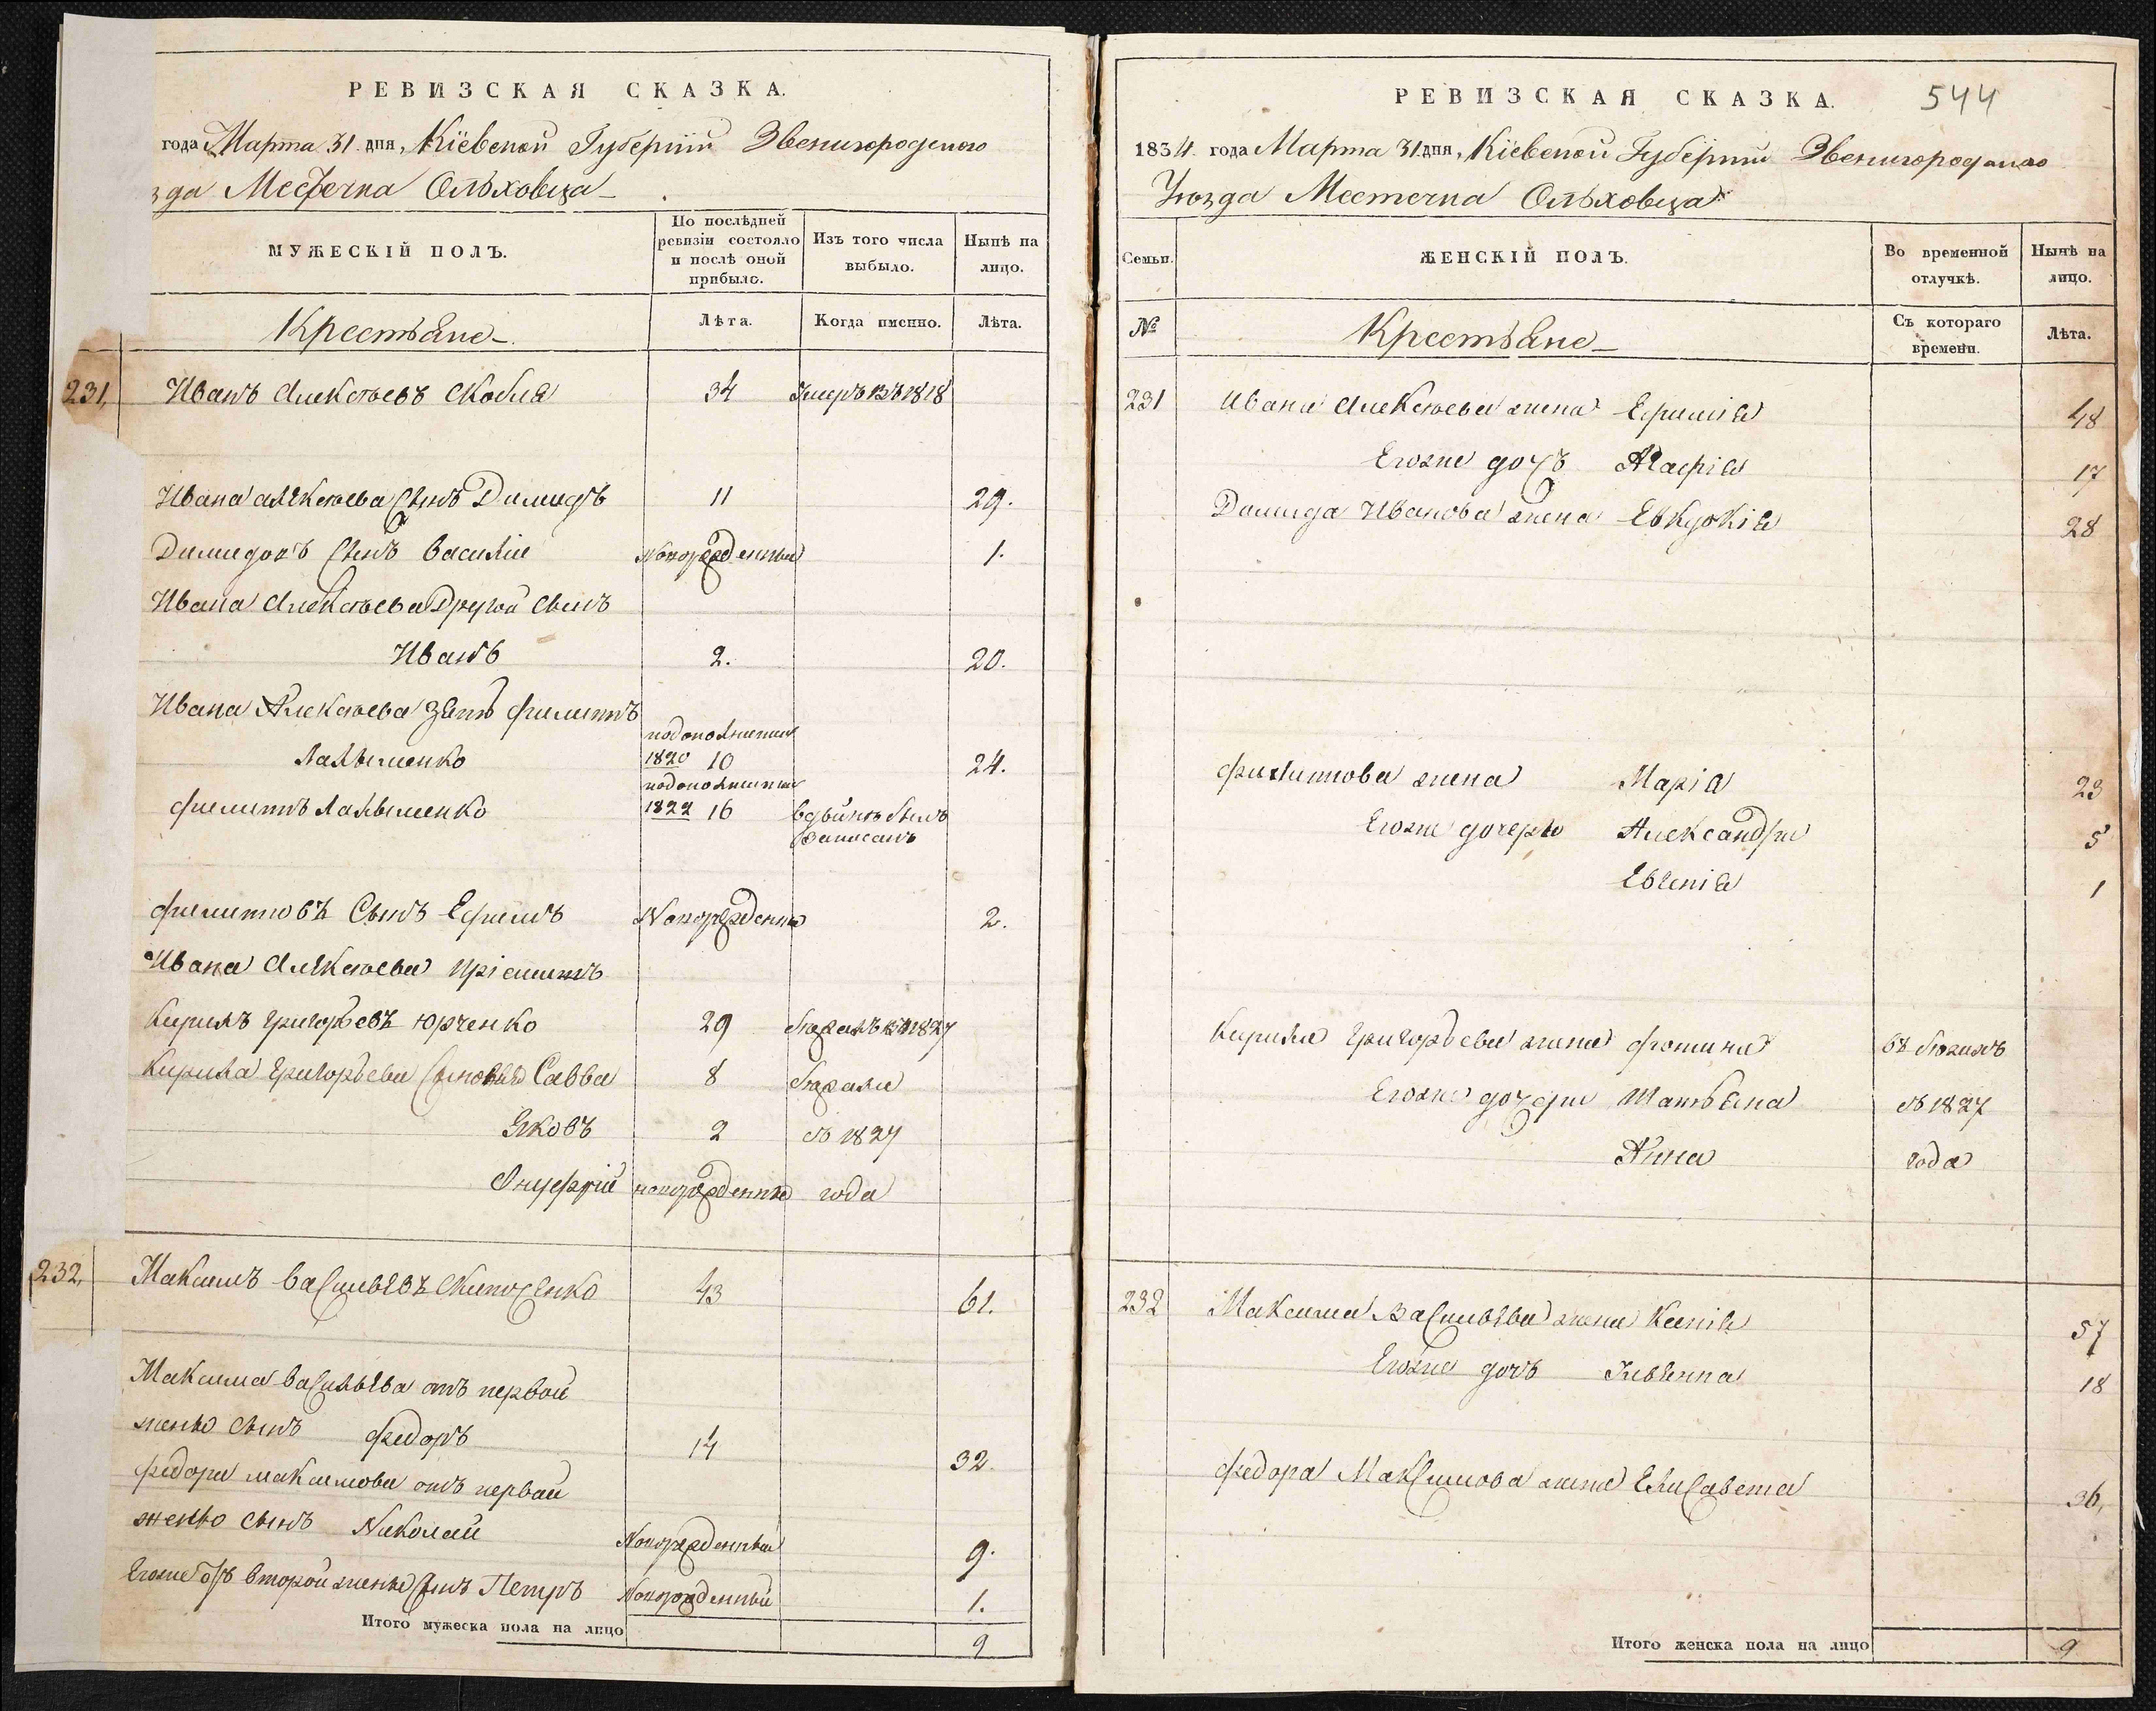 РЕВИЗСКАЯ СКАЗКА.
года Марта 31 дня, Кіевской Губерніи Звенигородского
зда Местечка Ольховца
МУЖЕСКІЙ ПОЛЪ.
По послѣдней ревизіи состояло и послѣ оной прибыло.
Изъ того числа выбыло.
Нынѣ на лицо.
Крестьяне
Лѣта.
Когда именно.
Лѣта.
231, Иванъ Алексѣевъ Скобля 34 Умеръ въ 1818
Ивана алексѣева сынъ Димидъ 11 29.
Димидовъ сынъ Василій Новорожденный 1.
Ивана Алексѣева Другой сынъ
Иванъ 2. 20.
Ивана Алексѣева зять филиппъ
подополнению
1820 10 24.
подополнению
филиппъ 1822 16 вдвойнѣ былъ
записанъ
филиповъ Сынъ Ефимъ Новорожденный 2.
Ивана Алексѣева пріемишъ
Кирилъ григорьевъ юрченко 29 бѣжалъ въ 1827
Кирила григорьева сыновья Савва 8 бѣжали
Яковъ 2 съ 1827
Онуфрій новорожденный года
232, Максимъ васильевъ 43 61.
Максима васильева отъ первой
жены сынъ федоръ 14 32.
федора максимова отъ первой
жены сынъ Николай Новорожденный 9.
Егоже отъ второй жены сынъ Петръ Новорожденный 1.
Итого мужеска пола на лицо 9
РЕВИЗСКАЯ СКАЗКА. 544
1834 года Марта 31 дня, Кіевской Губерніи Звенигородского
Уѣзда Местечка Ольховца
Семьи.
ЖЕНСКІЙ ПОЛЪ.
Во временной отлучкѣ.
Нынѣ на лицо.
№
Крестьяне
Съ котораго времени.
Лѣта.
231 Ивана Алексѣева жена Ефимія 48
Егоже дочъ Агафія 17
Димида Иванова жена Евдокія 28
филиппова жена Марія 23
Егоже дочери Александра 5
Евгенія 1
Кирила григорьева жена фотина въ бѣгахъ
Егоже дочери Татьяна съ 1827
Анна года
232 Максима Васильева жена Ксенія 57
Егоже дочъ 18
федора Максимова жена Елисавета 36,
Итого женска пола на лицо 9